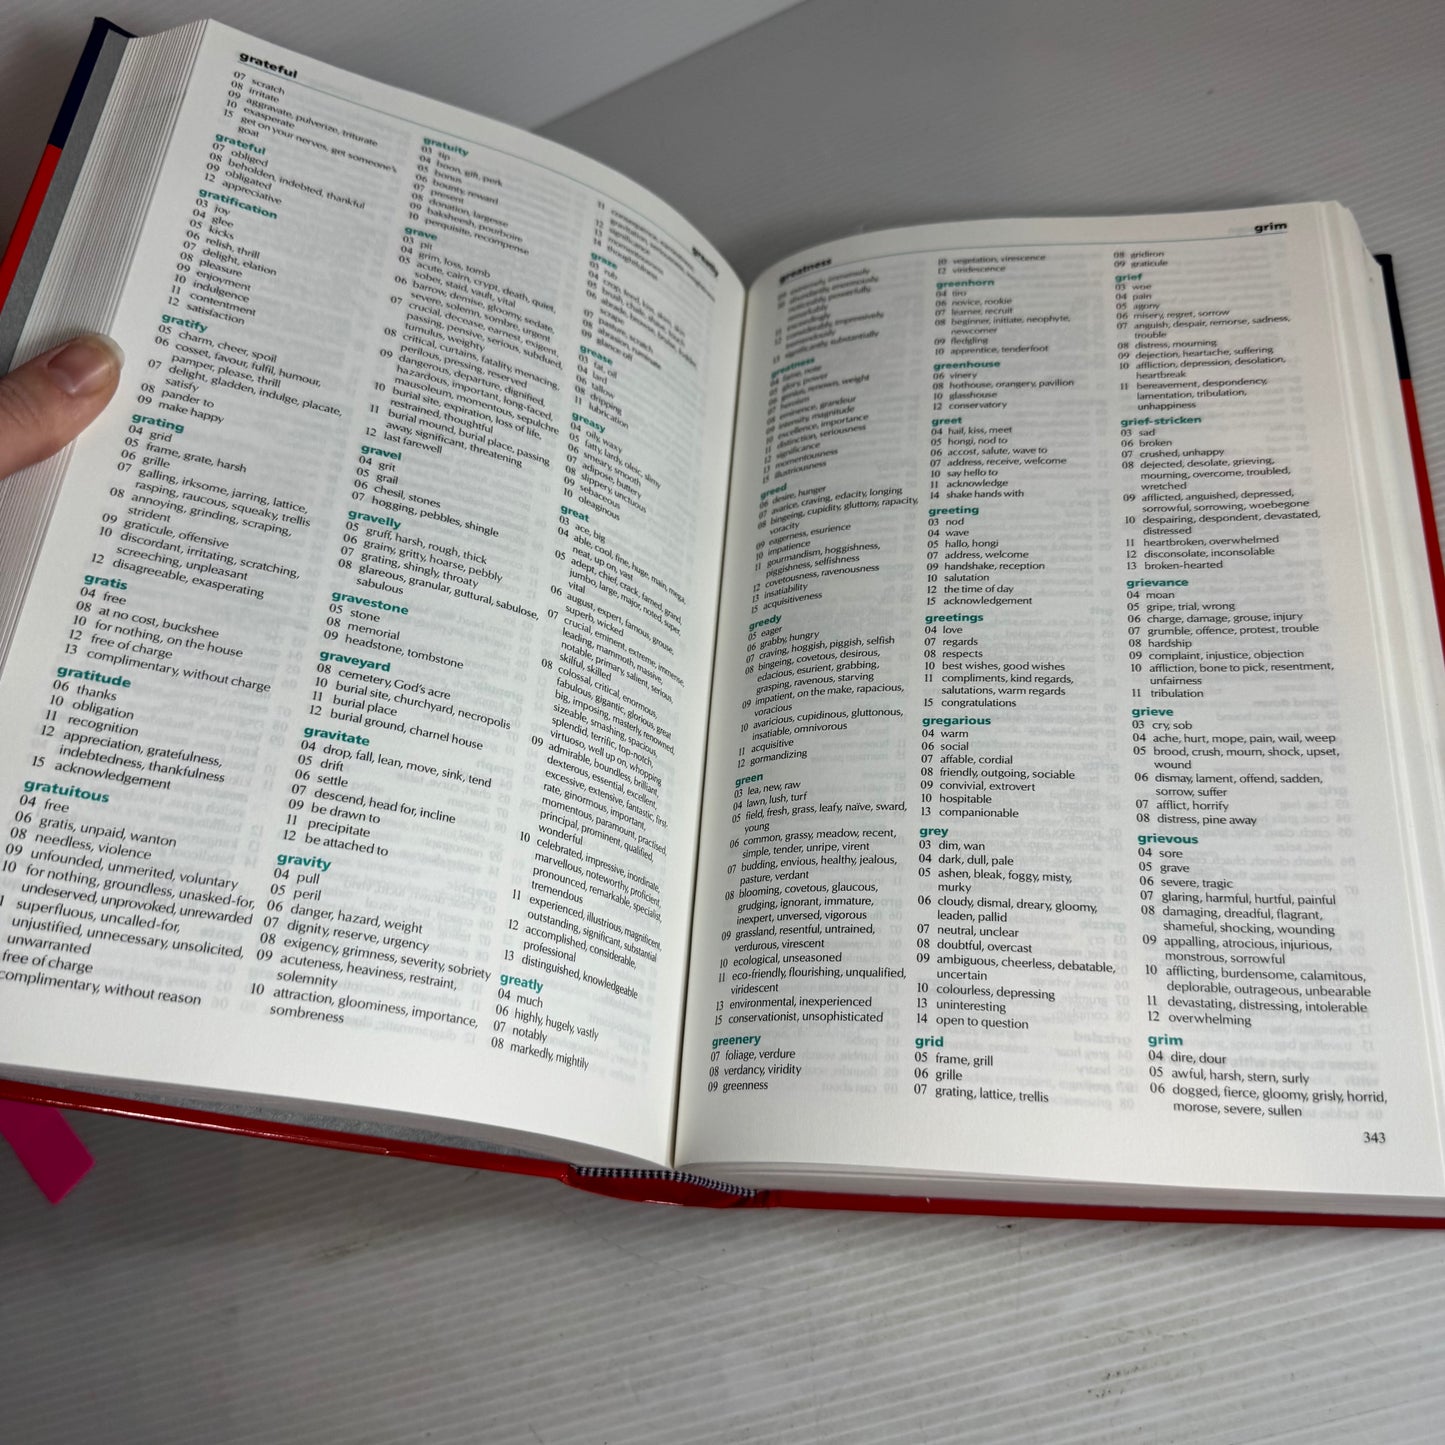 grateful
07 scratch
08 irritate
09 aggravate, pulverize, triturate
10 exasperate
15 get on your nerves, get someone's
goat
grateful
07 obliged
08 beholden, indebted, thankful
09 obligated
12 appreciative
gratification
03 joy
04 glee
05 kicks
06 relish, thrill
07 delight, elation
08 pleasure
09 enjoyment
10 indulgence
11 contentment
12 satisfaction
gratify
05 charm, cheer, spoil
06 cosset, favour, fulfil, humour,
pamper, please, thrill
07 delight, gladden, indulge, placate,
satisfy
08 pander to
09 make happy
grating
04 grid
05 frame, grate, harsh
06 grille
07 galling, irksome, jarring, lattice,
rasping, raucous, squeaky, trellis
08 annoying, grinding, scraping,
strident
09 graticule, offensive
10 discordant, irritating, scratching,
screeching, unpleasant
12 disagreeable, exasperating
gratis
04 free
08 at no cost, buckshee
10 for nothing, on the house
12 free of charge
13 complimentary, without charge
gratitude
06 thanks
10 obligation
11 recognition
12 appreciation, gratefulness,
indebtedness, thankfulness
15 acknowledgement
gratuitous
04 free
06 gratis, unpaid, wanton
08 needless, violence
09 unfounded, unmerited, voluntary
10 for nothing, groundless, unasked-for,
undeserved, unprovoked, unrewarded
superfluous, uncalled-for,
unjustified, unnecessary, unsolicited,
unwarranted
free of charge
complimentary, without reason
gratuity
03 tip
04 boon, gift, perk
05 bonus
06 bounty, reward
07 present
08 donation, largesse
09 baksheesh, pourboire
10 perquisite, recompense
grave
03 pit
04 grim, loss, tomb
05 acute, cairn, crypt, death, quiet,
sober, staid, vault, vital
06 barrow, demise, gloomy, sedate,
severe, solemn, sombre, urgent
07 crucial, decease, earnest, exigent,
passing, pensive, serious, subdued,
tumulus, weighty
08 critical, curtains, fatality, menacing,
perilous, pressing, reserved
09 dangerous, departure, dignified,
hazardous, important, long-faced,
mausoleum, momentous, sepulchre
10 burial site, expiration, loss of life,
restrained, thoughtful
11 burial mound, burial place, passing
away, significant, threatening
12 last farewell
gravel
04 grit
05 grail
06 chesil, stones
07 hogging, pebbles, shingle
gravelly
05 gruff, harsh, rough, thick
06 grainy, gritty, hoarse, pebbly
07 grating, shingly, throaty
08 glareous, granular, guttural, sabulose,
sabulous
gravestone
05 stone
08 memorial
09 headstone, tombstone
graveyard
08 cemetery, God's acre
10 burial site, churchyard, necropolis
11 burial place
12 burial ground, charnel house
gravitate
04 drop, fall, lean, move, sink, tend
05 drift
06 settle
07 descend, head for, incline
09 be drawn to
11 precipitate
12 be attached to
gravity
04 pull
05 peril
06 danger, hazard, weight
07 dignity, reserve, urgency
08 exigency, grimness, severity, sobriety
09 acuteness, heaviness, restraint,
solemnity
10 attraction, gloominess, importance,
sombreness
greatly
11
12
13
14 thoughtfulness
graze
03 rub
04 crop, feed, kiss, skim, skin
05 brush, chafe, shave, touch
06 abrade, browse, bruise, fodder,
scrape
07 pasture, scratch
08 abrasion, ruminate
09 glance off
grease
03 fat, oil
04 lard
06 tallow
08 dripping
11 lubrication
greasy
04 oily, waxy
05 fatty, lardy, oleic, slimy
06 smeary, smooth
07 adipose, buttery
08 slippery, unctuous
09 sebaceous
10 oleaginous
great
03 ace, big
04 able, cool, fine, huge, main, mega,
neat, up on, vast
05 adept, chief, crack, famed, grand,
jumbo, large, major, noted, super,
vital
06 august, expert, famous, grouse,
superb, wicked
07 crucial, eminent, extreme, immense,
leading, mammoth, massive,
notable, primary, salient, serious,
skilful, skilled
08 colossal, critical, enormous,
fabulous, gigantic, glorious, great
big, imposing, masterly, renowned,
sizeable, smashing, spacious,
splendid, terrific, top-notch,
virtuoso, well up on, whopping
09 admirable, boundless, brilliant,
dexterous, essential, excellent,
excessive, extensive, fantastic, first-
rate, ginormous, important,
momentous, paramount, practised,
principal, prominent, qualified,
wonderful
10 celebrated, impressive, inordinate,
marvellous, noteworthy, proficient,
pronounced, remarkable, specialist,
tremendous
11 experienced, illustrious, magnificent,
outstanding, significant, substantial
12 accomplished, considerable,
professional
13 distinguished, knowledgeable
greatly
04 much
06 highly, hugely, vastly
07 notably
08 markedly, mightily
greatness
grim
greatness
04 fame, note
05 glory, power
06 genius, renown, weight
07 heroism
08 eminence, grandeur
09 intensity, magnitude
10 excellence, importance
11 distinction, seriousness
12 significance
13 momentousness
15 illustriousness
greed
06 desire, hunger
07 avarice, craving, edacity, longing
08 bingeing, cupidity, gluttony, rapacity,
voracity
09 eagerness, esurience
10 impatience
11 gourmandism, hoggishness,
piggishness, selfishness
12 covetousness, ravenousness
13 insatiability
15 acquisitiveness
greedy
05 eager
06 grabby, hungry
07 craving, hoggish, piggish, selfish
08 bingeing, covetous, desirous,
edacious, esurient, grabbing,
grasping, ravenous, starving
09 impatient, on the make, rapacious,
voracious
10 avaricious, cupidinous, gluttonous,
insatiable, omnivorous
11 acquisitive
12 gormandizing
green
03 lea, new, raw
04 lawn, lush, turf
05 field, fresh, grass, leafy, naïve, sward,
young
06 common, grassy, meadow, recent,
simple, tender, unripe, virent
07 budding, envious, healthy, jealous,
pasture, verdant
08 blooming, covetous, glaucous,
grudging, ignorant, immature,
inexpert, unversed, vigorous
09 grassland, resentful, untrained,
verdurous, virescent
10 ecological, unseasoned
11 eco-friendly, flourishing, unqualified,
viridescent
13 environmental, inexperienced
15 conservationist, unsophisticated
greenery
07 foliage, verdure
08 verdancy, viridity
09 greenness
10 vegetation, virescence
12 viridescence
greenhorn
04 tiro
06 novice, rookie
07 learner, recruit
08 beginner, initiate, neophyte,
newcomer
09 fledgling
10 apprentice, tenderfoot
greenhouse
06 vinery
08 hothouse, orangery, pavilion
10 glasshouse
12 conservatory
greet
04 hail, kiss, meet
05 hongi, nod to
06 accost, salute, wave to
07 address, receive, welcome
10 say hello to
11 acknowledge
14 shake hands with
greeting
03 nod
04 wave
05 hallo, hongi
07 address, welcome
09 handshake, reception
10 salutation
12 the time of day
15 acknowledgement
greetings
04 love
07 regards
08 respects
10 best wishes, good wishes
11 compliments, kind regards,
salutations, warm regards
15 congratulations
gregarious
04 warm
06 social
07 affable, cordial
08 friendly, outgoing, sociable
09 convivial, extrovert
10 hospitable
13 companionable
grey
03 dim, wan
04 dark, dull, pale
05 ashen, bleak, foggy, misty,
murky
06 cloudy, dismal, dreary, gloomy,
leaden, pallid
07 neutral, unclear
08 doubtful, overcast
09 ambiguous, cheerless, debatable,
uncertain
10 colourless, depressing
13 uninteresting
14 open to question
grid
05 frame, grill
06 grille
07 grating, lattice, trellis
08 gridiron
09 graticule
grief
03 woe
04 pain
05 agony
06 misery, regret, sorrow
07 anguish, despair, remorse, sadness,
trouble
08 distress, mourning
09 dejection, heartache, suffering
10 affliction, depression, desolation,
heartbreak
11 bereavement, despondency,
lamentation, tribulation,
unhappiness
grief-stricken
03 sad
06 broken
07 crushed, unhappy
08 dejected, desolate, grieving,
mourning, overcome, troubled,
wretched
09 afflicted, anguished, depressed,
sorrowful, sorrowing, woebegone
10 despairing, despondent, devastated,
distressed
11 heartbroken, overwhelmed
12 disconsolate, inconsolable
13 broken-hearted
grievance
04 moan
05 gripe, trial, wrong
06 charge, damage, grouse, injury
07 grumble, offence, protest, trouble
08 hardship
09 complaint, injustice, objection
10 affliction, bone to pick, resentment,
unfairness
11 tribulation
grieve
03 cry, sob
04 ache, hurt, mope, pain, wail, weep
05 brood, crush, mourn, shock, upset,
wound
06 dismay, lament, offend, sadden,
sorrow, suffer
07 afflict, horrify
08 distress, pine away
grievous
04 sore
05 grave
06 severe, tragic
07 glaring, harmful, hurtful, painful
08 damaging, dreadful, flagrant,
shameful, shocking, wounding
09 appalling, atrocious, injurious,
monstrous, sorrowful
10 afflicting, burdensome, calamitous,
deplorable, outrageous, unbearable
11 devastating, distressing, intolerable
12 overwhelming
grim
04 dire, dour
05 awful, harsh, stern, surly
06 dogged, fierce, gloomy, grisly, horrid,
morose, severe, sullen
343